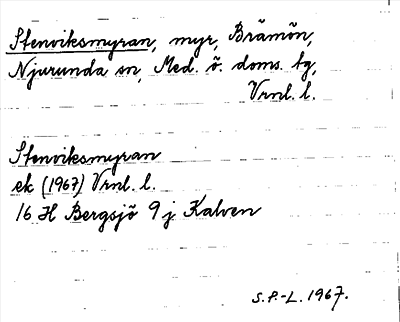 Stenviksmyran, myr, Brämön,
Njurunda sn, Med. ö. doms. tg,
Vrnl. l.
Stenviksmyran
ek (1967) Vrnl. l.
16 H Bergsjö 9 j Kalven
S.P.-L. 1967.